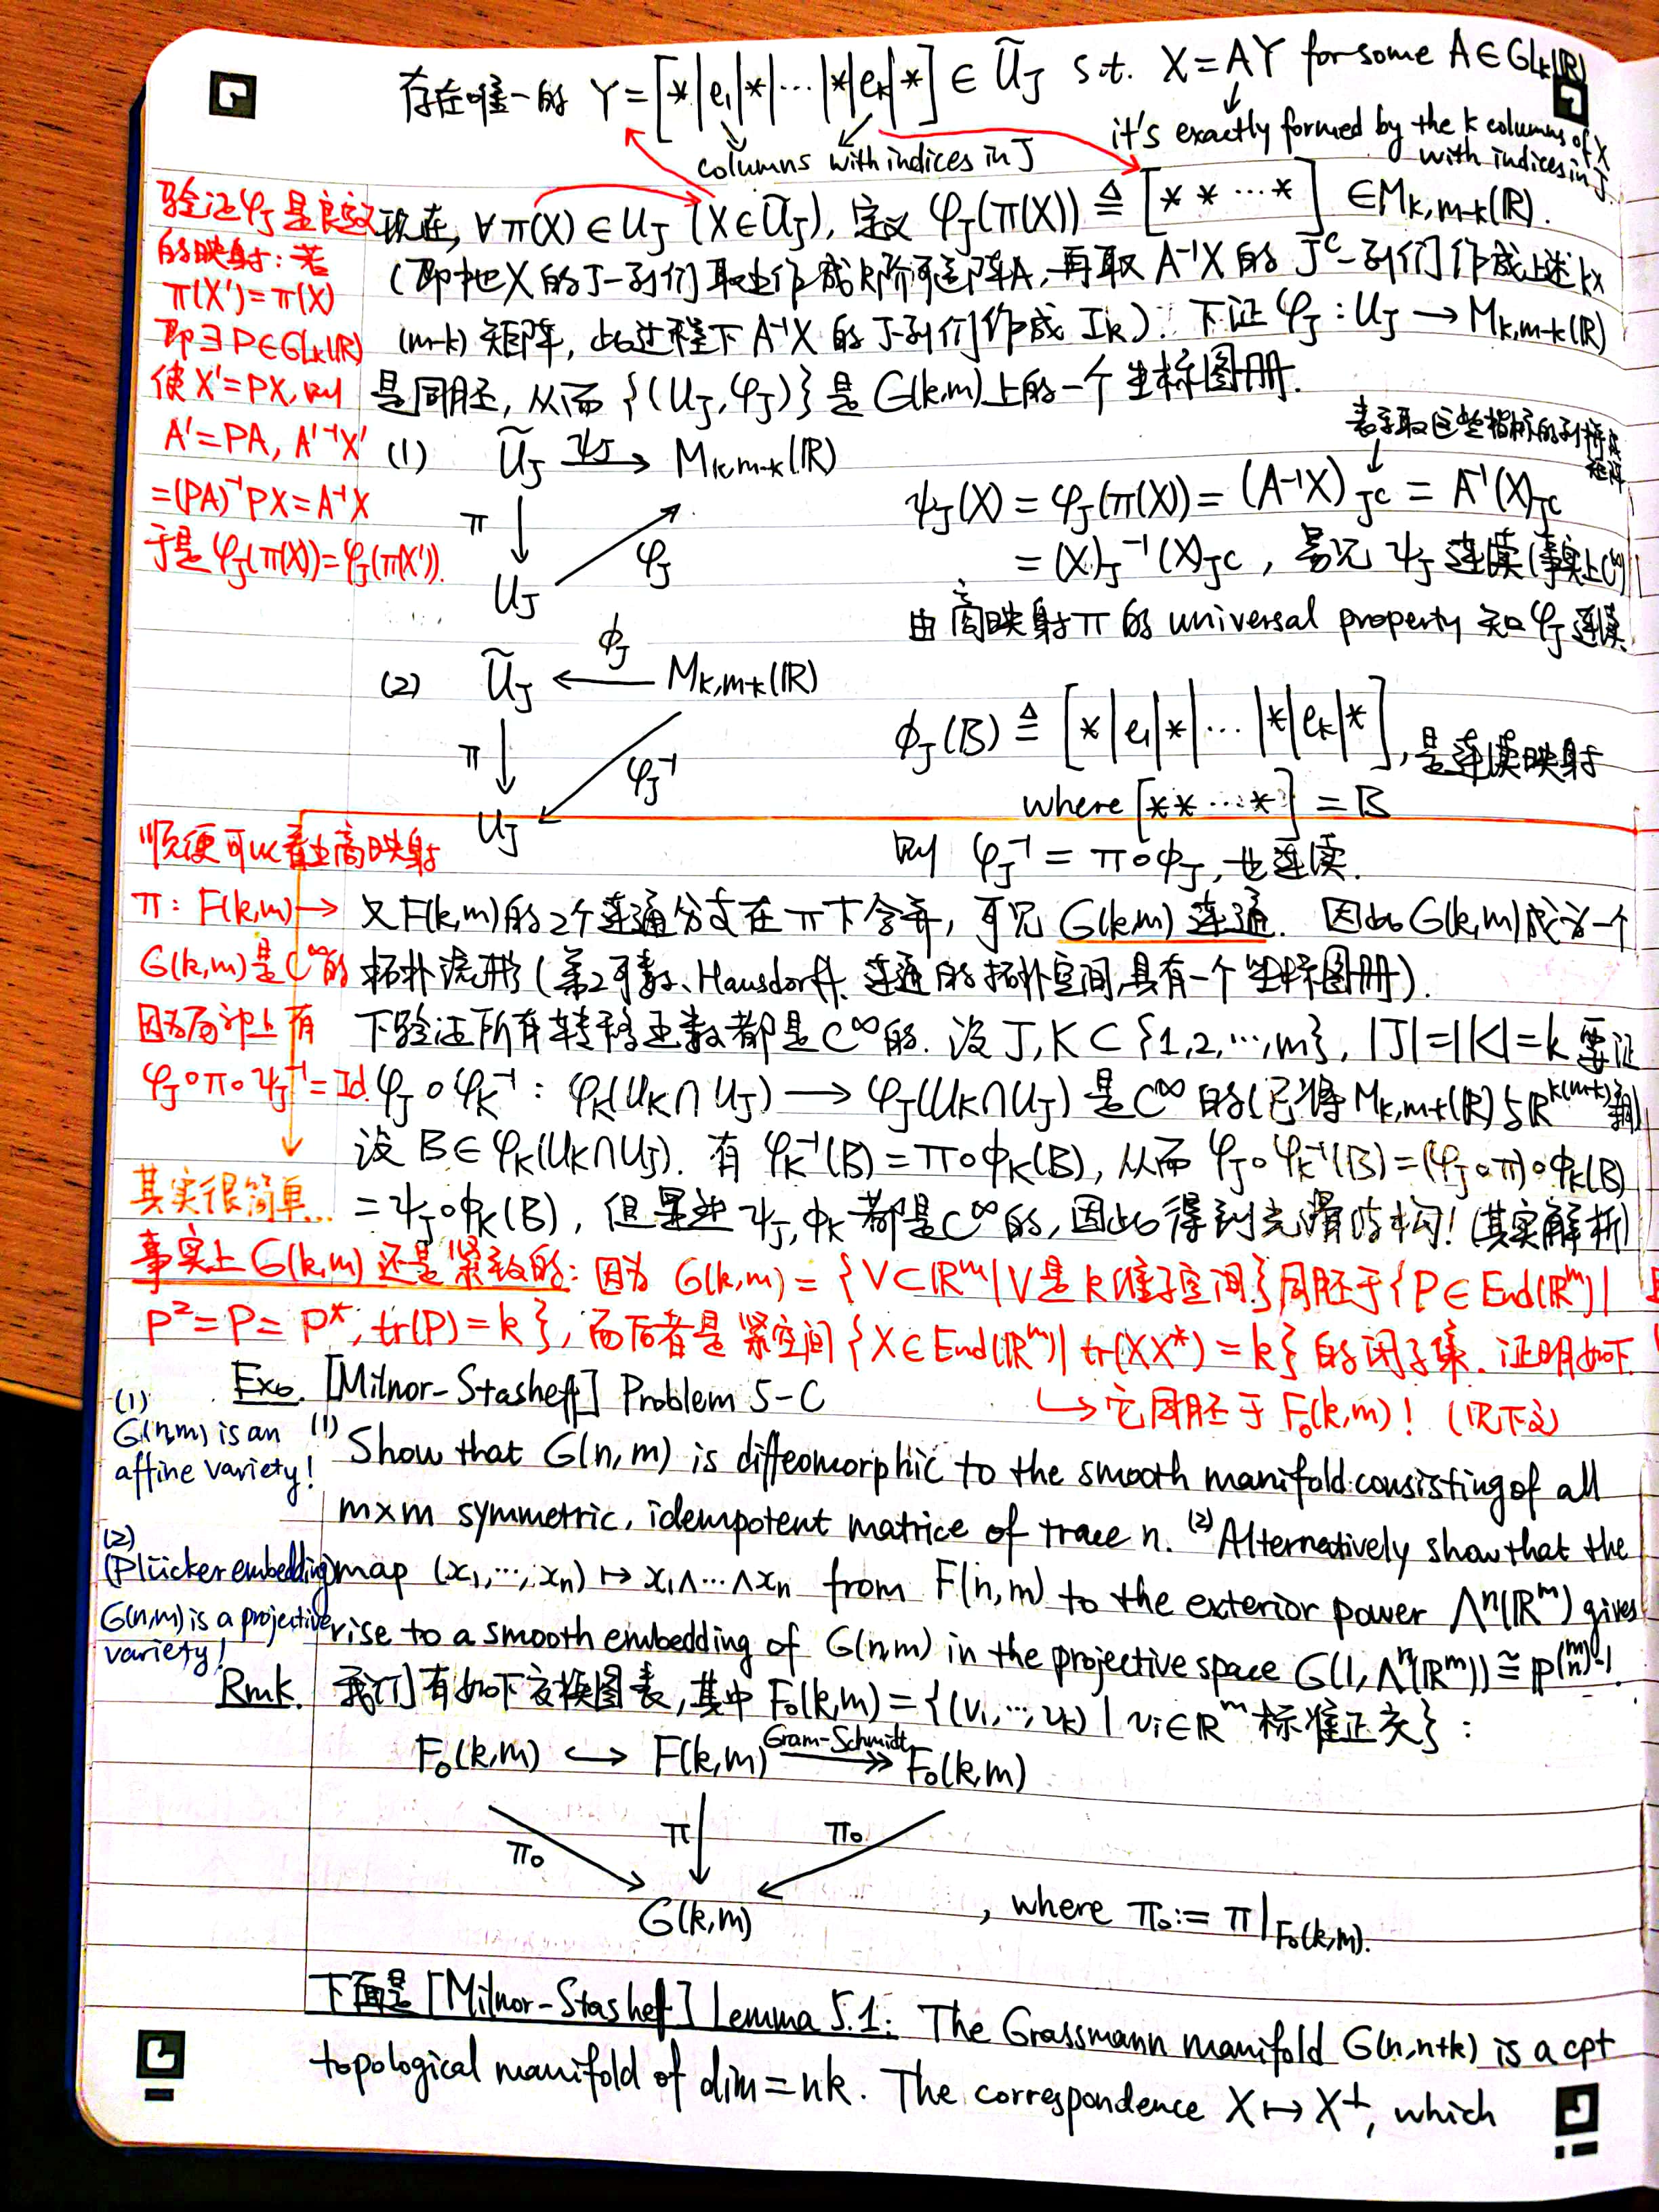 存在唯一的 Y=[*|e₁|*|⋯|*|eₖ|*] ∈ Ũ_J s.t. X=AY for some A∈GLₖ(ℝ)
columns with indices in J
it's exactly formed by the k columns of X
with indices in J.
验证φ_J是良定义
的映射: 若
π(X')=π(X)
即∃P∈GLₖ(ℝ)
使X'=PX, 则
A'=PA, A'⁻¹X'
=(PA)⁻¹PX=A⁻¹X
于是φ_J(π(X))=φ_J(π(X')).
现在, ∀π(X)∈U_J (X∈Ũ_J), 定义 φ_J(π(X)) ≜ [* * ⋯ *] ∈M_{k,m-k}(ℝ).
(即把X的J-列们取出作成k阶可逆阵A, 再取 A⁻¹X 的 Jᶜ-列们作成上述k×
(m-k) 矩阵, 此过程下 A⁻¹X 的 J-列们作成 Iₖ). 下证 φ_J : U_J → M_{k,m-k}(ℝ)
是同胚, 从而 {(U_J, φ_J)} 是 G(k,m)上的一个坐标图册.
(1) Ũ_J —ψ_J→ M_{k,m-k}(ℝ)
π↓ ↗φ_J
U_J
表示取这些指标的列拼成矩阵
ψ_J(X) = φ_J(π(X)) = (A⁻¹X)_{Jᶜ} = A⁻¹(X)_{Jᶜ}
= (X)_J⁻¹(X)_{Jᶜ}, 易见 ψ_J 连续(事实上C^∞)
由商映射π的 universal property 知 φ_J 连续
(2) Ũ_J ←ϕ_J— M_{k,m-k}(ℝ)
π↓ ↙φ_J⁻¹
U_J
ϕ_J(B) ≜ [*|e₁|*|⋯|*|eₖ|*], 是连续映射
where [* * ⋯ *] = B
则 φ_J⁻¹ = π∘ϕ_J, 也连续.
顺便可以看出商映射
π: F(k,m)→
G(k,m)是C^∞的
因为局部上有
φ_J∘π∘ψ_J⁻¹=Id.
其实很简单...
又F(k,m)的2个连通分支在π下合并, 可见 G(k,m) 连通. 因此G(k,m)成为一个
拓扑流形 (第2可数、Hausdorff、连通的拓扑空间,具有一个坐标图册).
下验证所有转移函数都是C^∞的. 设 J,K⊂{1,2,⋯,m}, |J|=|K|=k 要证
φ_J∘φ_K⁻¹ : φ_K(U_K∩U_J) → φ_J(U_K∩U_J) 是C^∞的(已将M_{k,m-k}(ℝ)与ℝ^{k(m-k)}等同)
设 B∈φ_K(U_K∩U_J). 有 φ_K⁻¹(B)=π∘ϕ_K(B), 从而 φ_J∘φ_K⁻¹(B)=(φ_J∘π)∘ϕ_K(B)
=ψ_J∘ϕ_K(B), 但是这 ψ_J,ϕ_K 都是C^∞的, 因此得到光滑结构! (其实解析)
事实上 G(k,m) 还是紧致的: 因为 G(k,m)={V⊂ℝᵐ|V是k维子空间}同胚于{P∈End(ℝᵐ)|
P²=P=P*, tr(P)=k}, 而后者是紧空间{X∈End(ℝᵐ)| tr(XX*)=k}的闭子集. 证明如下
↪它同胚于 F₀(k,m)! (见下文)
Exo. [Milnor-Stasheff] Problem 5-C
(1)
G(n,m) is an
affine variety!
(1) Show that G(n,m) is diffeomorphic to the smooth manifold consisting of all
m×m symmetric, idempotent matrice of trace n. (2) Alternatively show that the
(2)
(Plücker embedding)
G(n,m) is a projective
variety!
map (x₁,⋯,xₙ)↦x₁∧⋯∧xₙ from F(n,m) to the exterior power Λⁿ(ℝᵐ) gives
rise to a smooth embedding of G(n,m) in the projective space G(1,Λⁿ(ℝᵐ))≅ℙ^{(m n)-1}.
Rmk. 我们有如下交换图表, 其中 F₀(k,m)={(v₁,⋯,vₖ) | vᵢ∈ℝᵐ 标准正交}:
F₀(k,m) ↪ F(k,m) —Gram-Schmidt↠ F₀(k,m)
π₀ π π₀
G(k,m) , where π₀:= π|_{F₀(k,m)}.
下面是 [Milnor-Stasheff] Lemma 5.1: The Grassmann manifold G(n,n+k) is a cpt
topological manifold of dim=nk. The correspondence X↦X^⊥, which